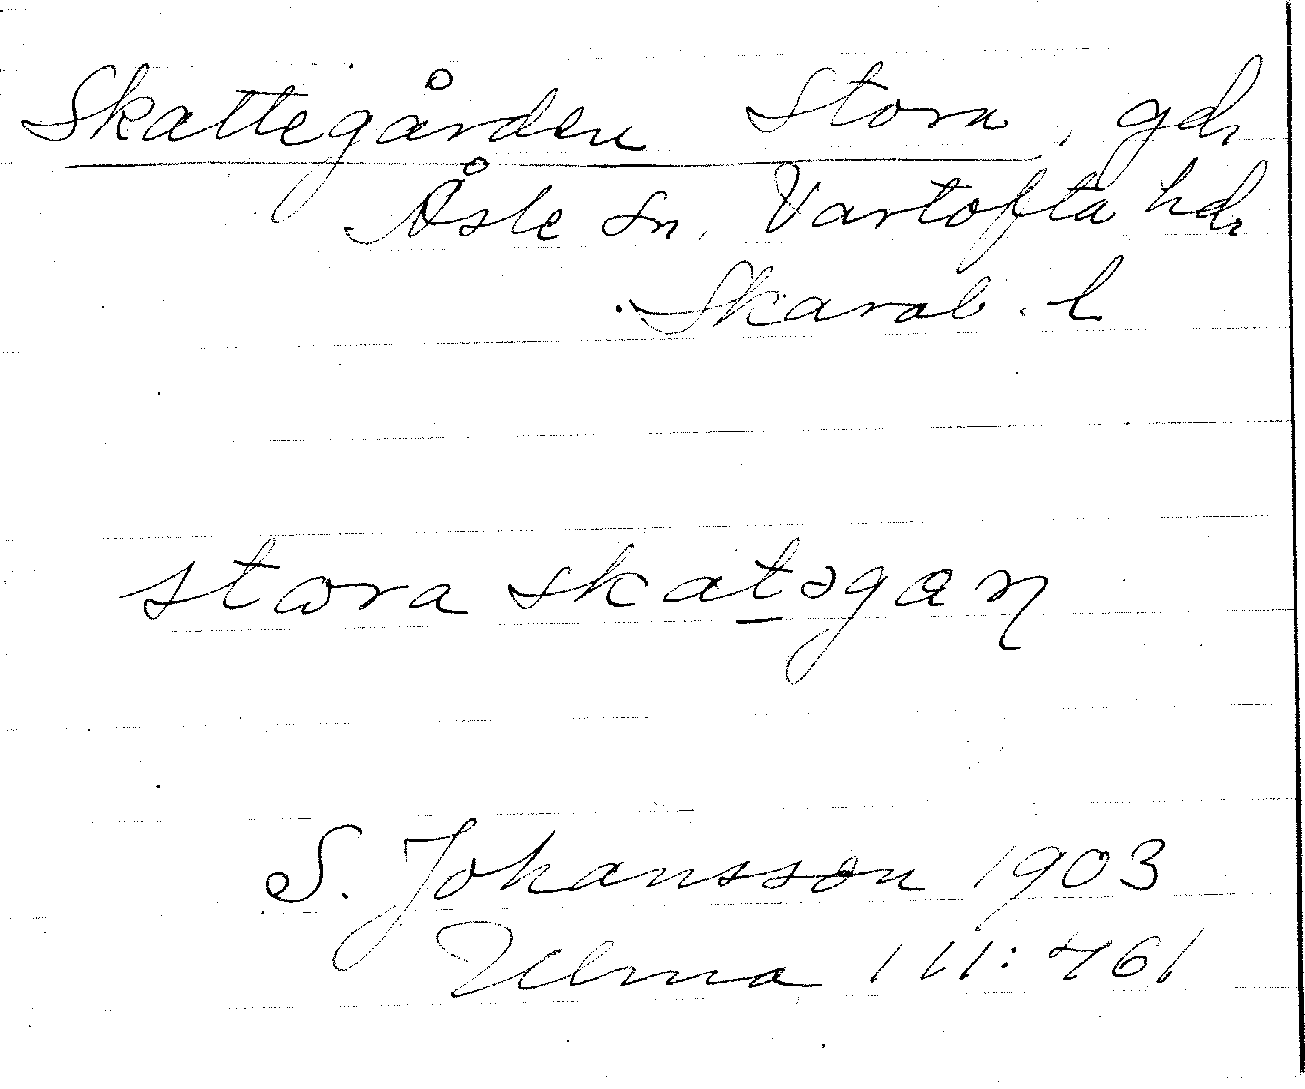 Skattegården Stora, gdr
Åsle sn, Vartofta hdr
Skarab. l
stɷra skat̠əgaɳ
S. Johansson 1903
Ulma 111:461